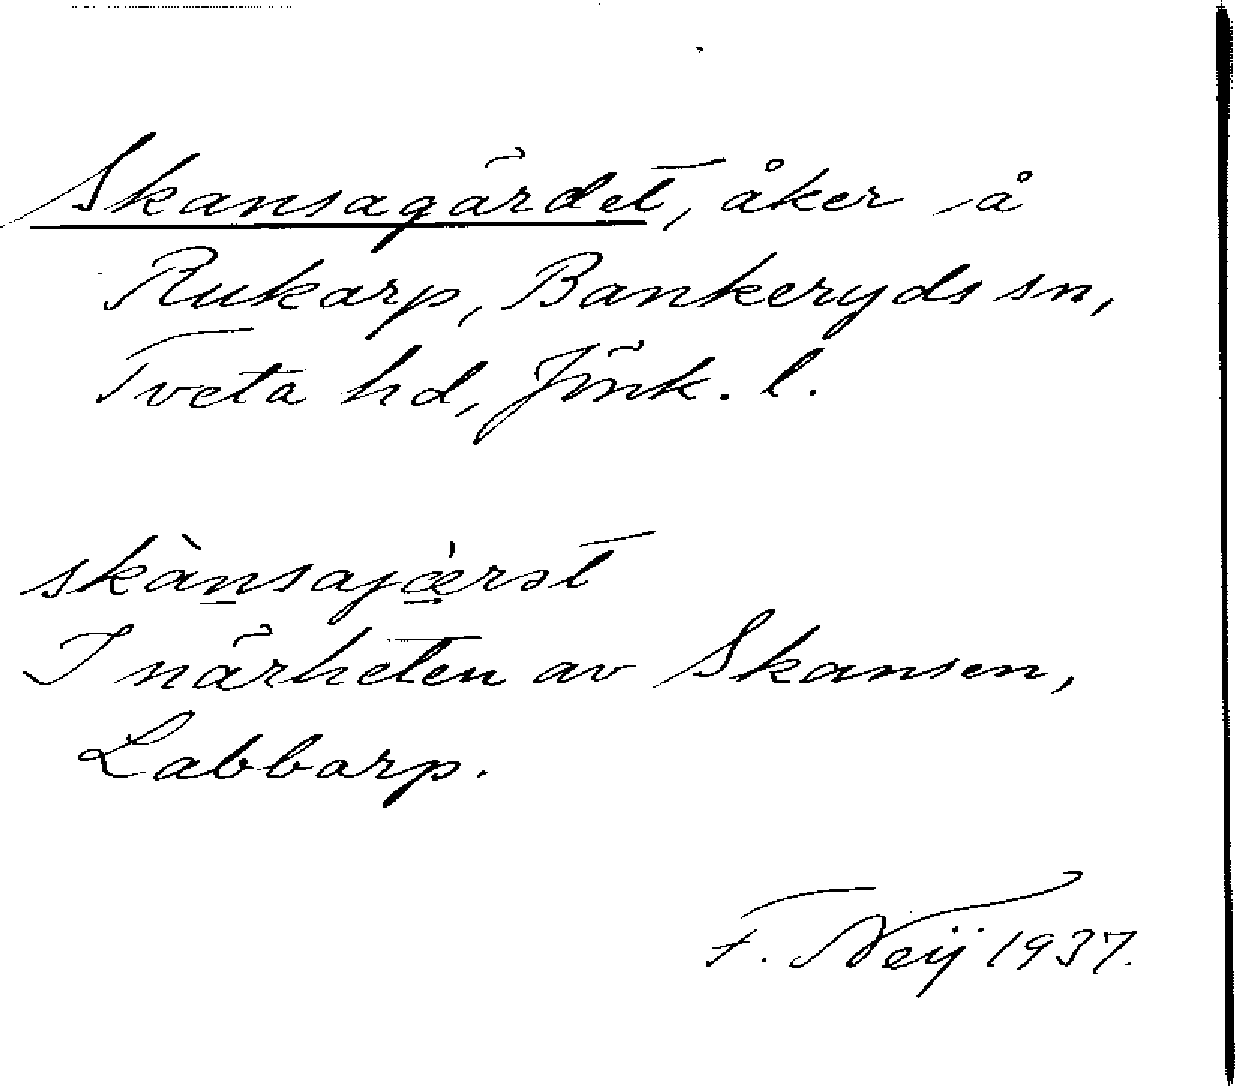 Skansagärdet, åker å
Rukarp, Bankeryds sn,
Tveta hd, Jönk. l.
skànsajæ̀rət
I närheten av Skansen,
Labbarp.
F. Neij 1937.